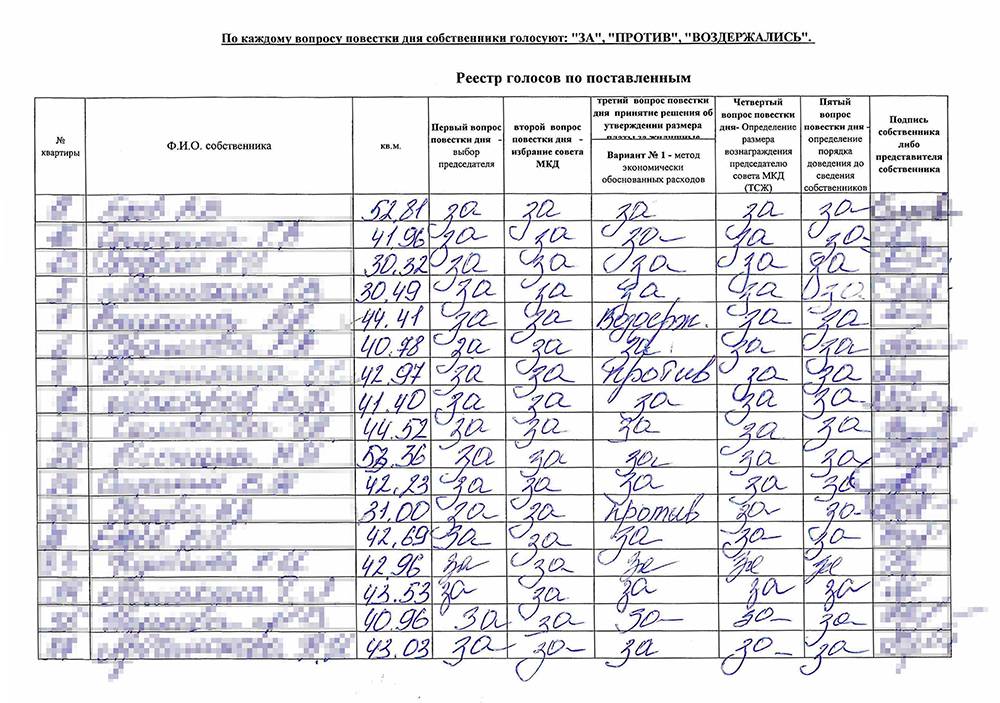 По каждому вопросу повестки дня собственники голосуют: "ЗА", "ПРОТИВ", "ВОЗДЕРЖАЛИСЬ".
Реестр голосов по поставленным
№ квартиры
Ф.И.О. собственника
кв.м.
Первый вопрос повестки дня - выбор председателя
второй вопрос повестки дня - избрание совета МКД
третий вопрос повестки дня принятие решения об утверждении размера
Вариант № 1 - метод экономически обоснованных расходов
Четвертый вопрос повестки дня- Определение размера вознаграждения председателю совета МКД (ТСЖ)
Пятый вопрос повестки дня - определение порядка доведения до сведения собственников
Подпись собственника либо представителя собственника
52,81 за за за за за
41.96 за за за за за
30.32 за за за за за
30.49 за за за за за
44.41 за за Воздерж. за за
40.78 за за за за за
42.97 за за против за за
41.40 за за за за за
44.52 за за за за за
53.36 за за за за за
42,23 за за за за за
31.00 за за против за за
42,69 за за за за за
42.96 за за за за за
43.53 за за за за за
40.96 за за за за за
43.03 за за за за за